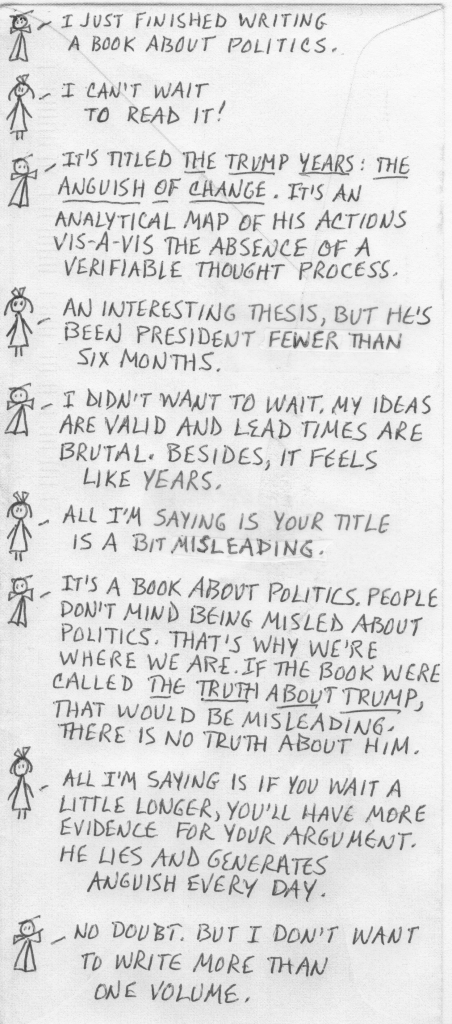 I JUST FINISHED WRITING
A BOOK ABOUT POLITICS.
I CAN'T WAIT
TO READ IT!
IT'S TITLED THE TRUMP YEARS: THE
ANGUISH OF CHANGE. IT'S AN
ANALYTICAL MAP OF HIS ACTIONS
VIS-A-VIS THE ABSENCE OF A
VERIFIABLE THOUGHT PROCESS.
AN INTERESTING THESIS, BUT HE'S
BEEN PRESIDENT FEWER THAN
SIX MONTHS.
I DIDN'T WANT TO WAIT. MY IDEAS
ARE VALID AND LEAD TIMES ARE
BRUTAL. BESIDES, IT FEELS
LIKE YEARS.
ALL I'M SAYING IS YOUR TITLE
IS A BIT MISLEADING.
IT'S A BOOK ABOUT POLITICS. PEOPLE
DON'T MIND BEING MISLED ABOUT
POLITICS. THAT'S WHY WE'RE
WHERE WE ARE. IF THE BOOK WERE
CALLED THE TRUTH ABOUT TRUMP,
THAT WOULD BE MISLEADING.
THERE IS NO TRUTH ABOUT HIM.
ALL I'M SAYING IS IF YOU WAIT A
LITTLE LONGER, YOU'LL HAVE MORE
EVIDENCE FOR YOUR ARGUMENT.
HE LIES AND GENERATES
ANGUISH EVERY DAY.
NO DOUBT. BUT I DON'T WANT
TO WRITE MORE THAN
ONE VOLUME.